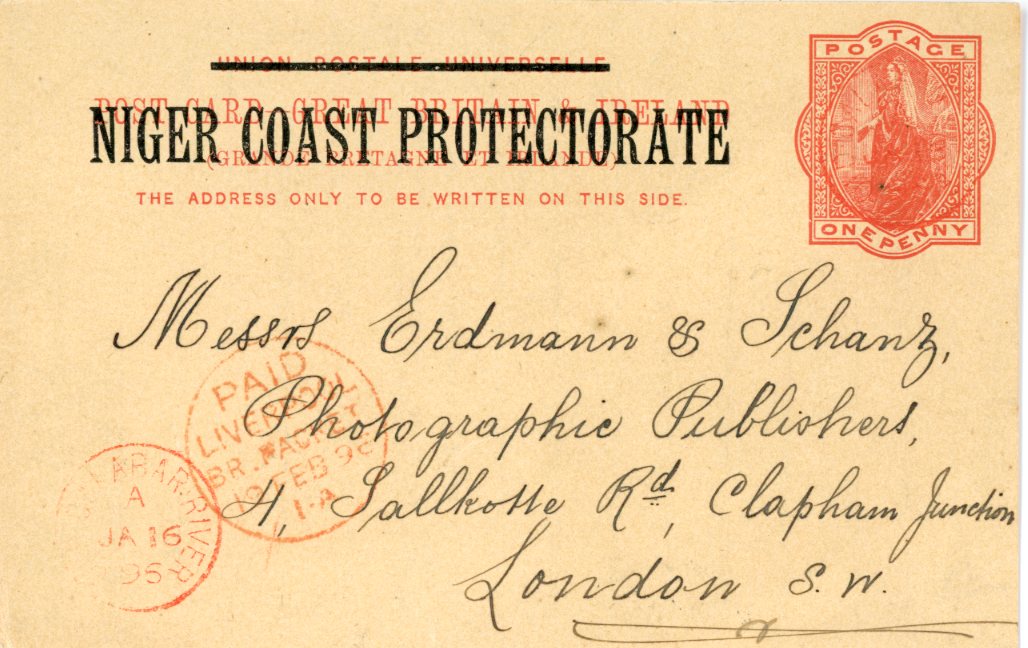 UNION POSTALE UNIVERSELLE
POST CARD GREAT BRITAIN & IRELAND
NIGER COAST PROTECTORATE
(GRANDE BRETAGNE ET IRLANDE)
THE ADDRESS ONLY TO BE WRITTEN ON THIS SIDE.
POSTAGE
ONE PENNY
Messrs Erdmann & Schanz,
Photographic Publishers,
4, Sallkotte Rd, Clapham Junction
London S.W.
PAID
LIVERPOOL
BR. PACKET
FEB 96
1-A
RIVER
A
JA 16